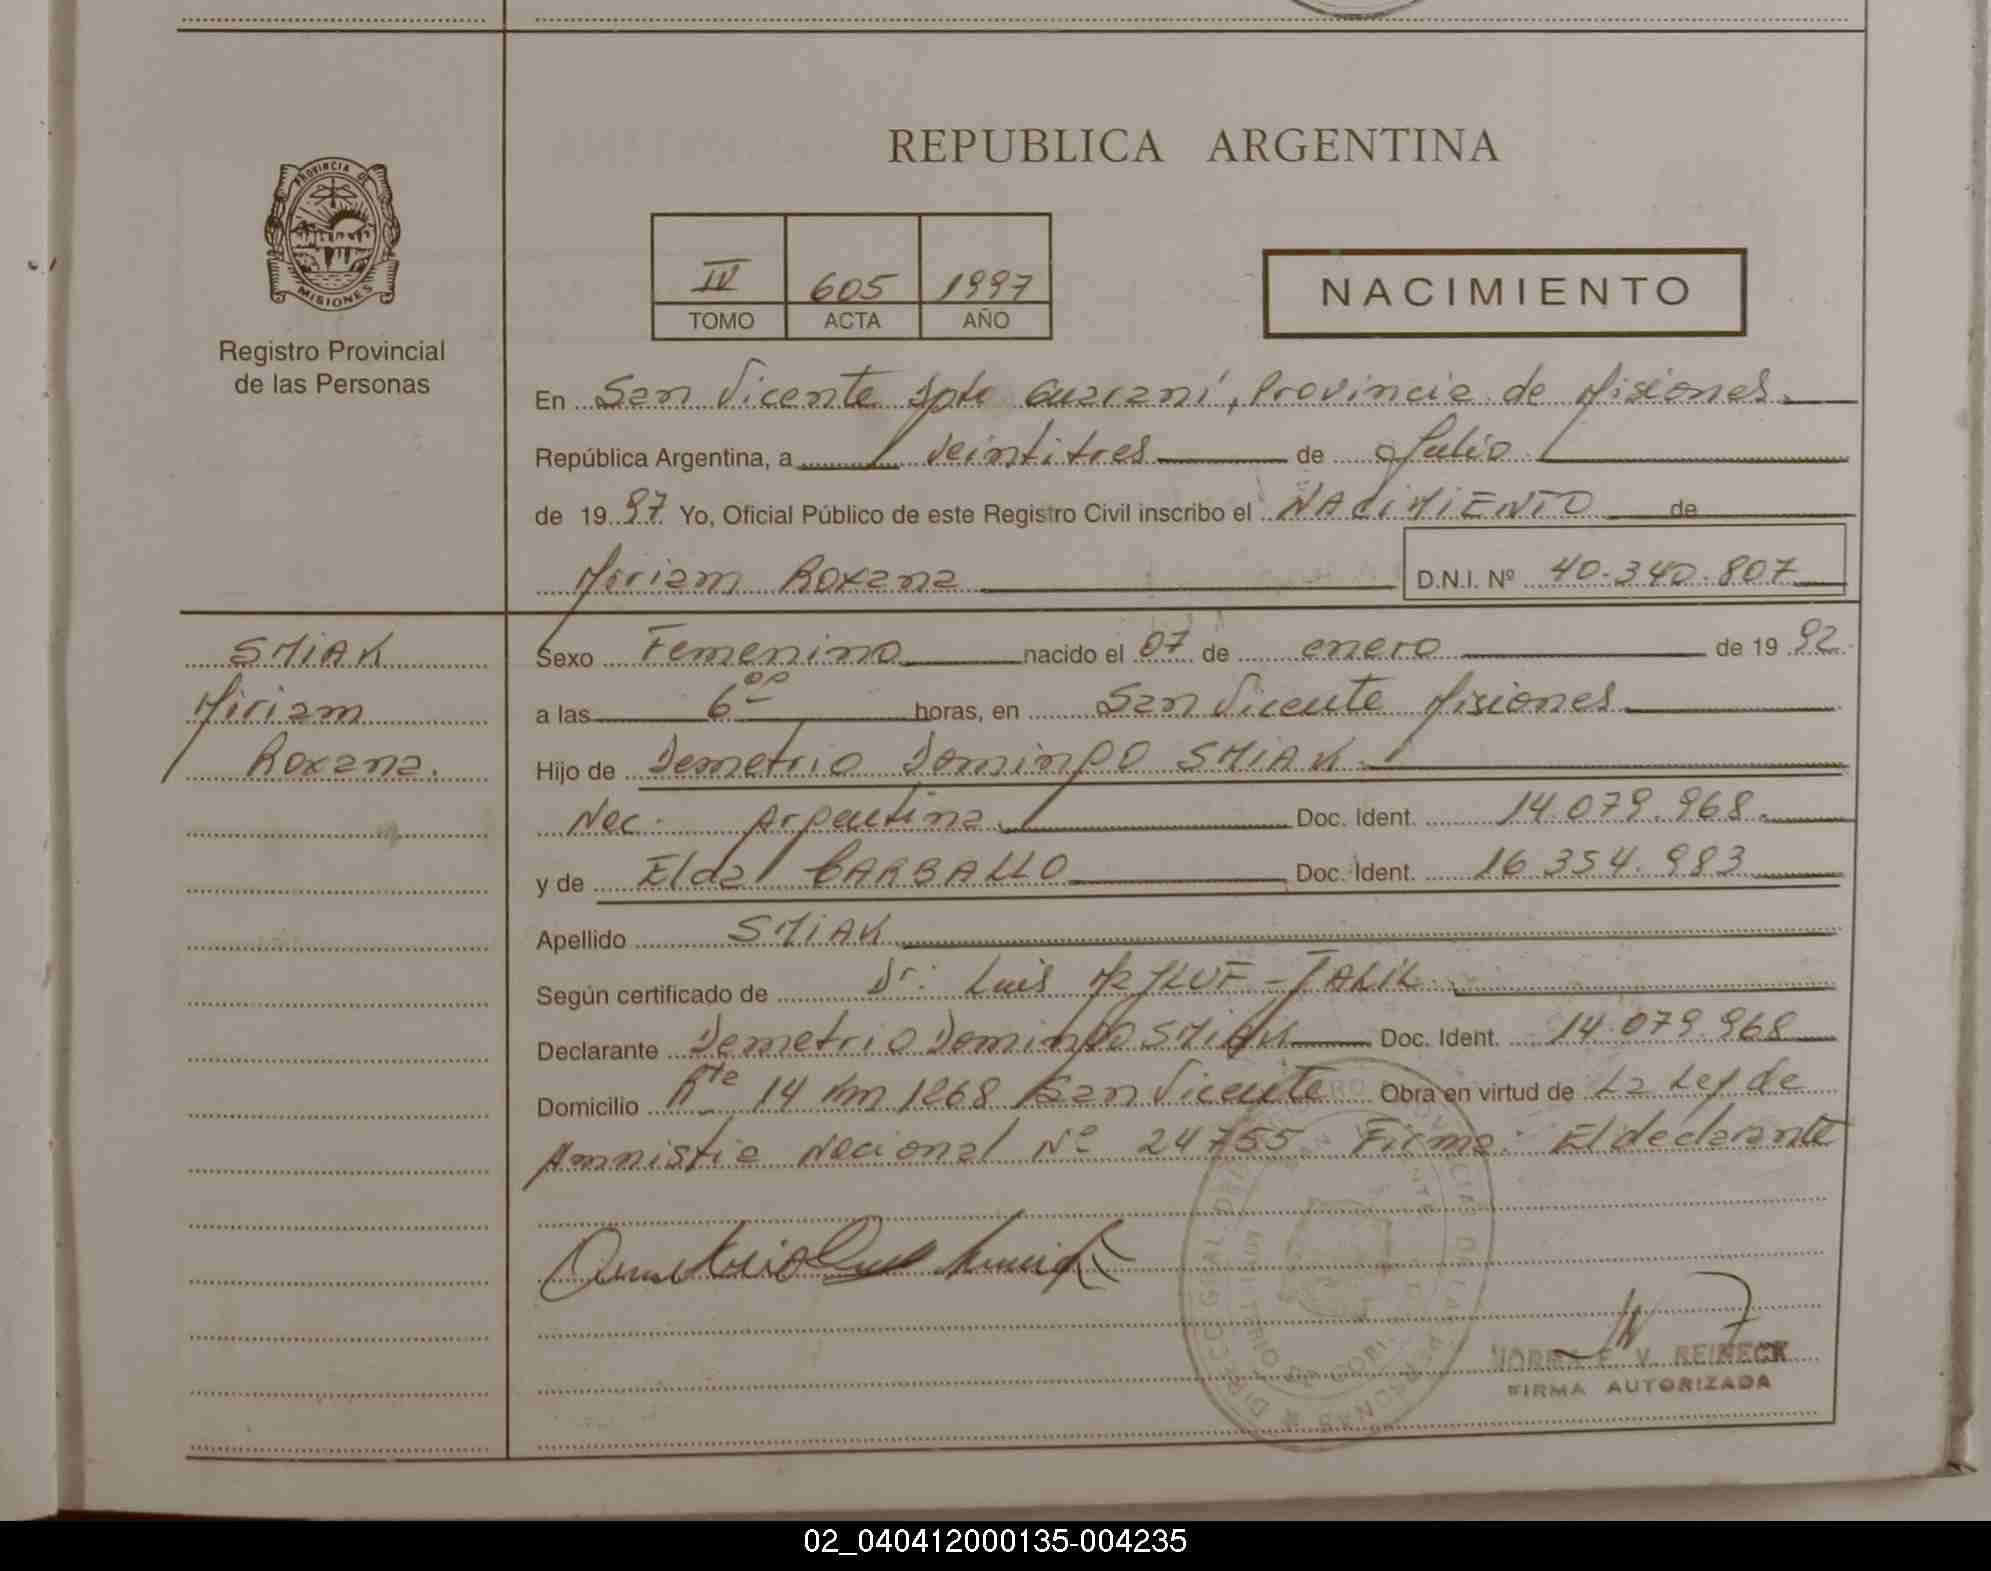 REPUBLICA ARGENTINA
PROVINCIA DE
MISIONES
Registro Provincial
de las Personas
IV 605 1997
TOMO ACTA AÑO
NACIMIENTO
En San Vicente Dpto Guaraní, Provincia de Misiones
República Argentina, a veintitres de Julio
de 1997 Yo, Oficial Público de este Registro Civil inscribo el NACIMIENTO de
Miriam Roxana D.N.I. Nº 40.340.807
SMIAK
Miriam
Roxana.
Sexo Femenino nacido el 07 de enero de 1992
a las 6 00 horas, en San Vicente Misiones
Hijo de Demetrio Domingo SMIAK
Nac. Argentina Doc. Ident. 14.079.968.
y de Elda CARBALLO Doc. Ident. 16.354.983
Apellido SMIAK
Según certificado de Dr: Luis
Declarante Demetrio Domingo SMIAK Doc. Ident. 14.079.968
Domicilio Rta 14 Km 1268 San Vicente Obra en virtud de La Ley de
Amnistia Nacional Nº 24755 Firma: El declarante
NORMA E. V. REINECK
FIRMA AUTORIZADA
02_040412000135-004235